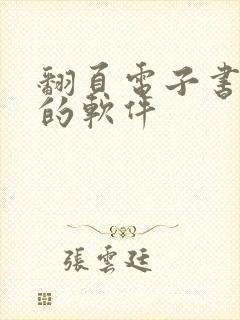 翻頁電子書
的軟件
張雲廷